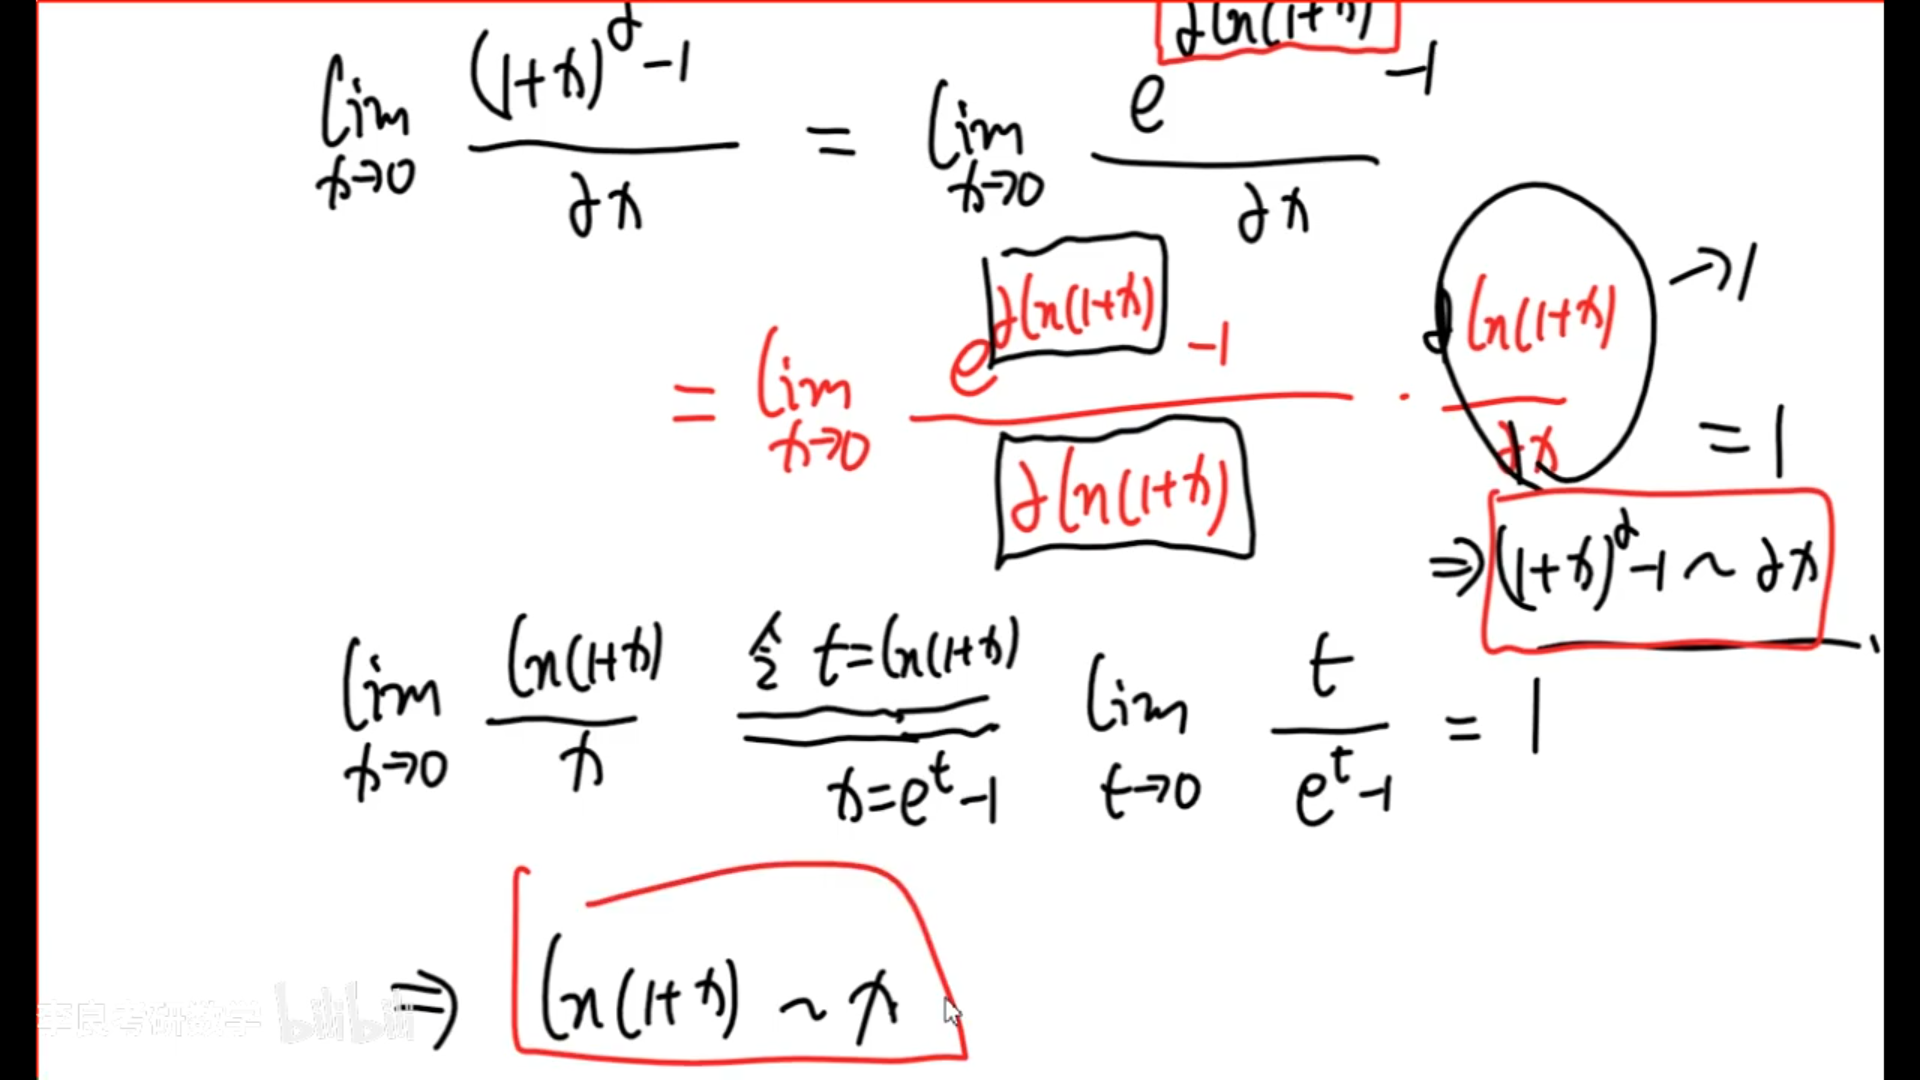 lim x→0 ((1+x)^α -1)/(αx) = lim x→0 (e^(αln(1+x)) -1)/(αx)
= lim x→0 (e^(αln(1+x)) -1)/(αln(1+x)) · (αln(1+x))/(αx) →1 = 1
⇒ (1+x)^α -1 ~ αx
lim x→0 ln(1+x)/x 令 t=ln(1+x) x=e^t -1 lim t→0 t/(e^t -1) = 1
⇒ ln(1+x) ~ x
李良考研数学 bilibili